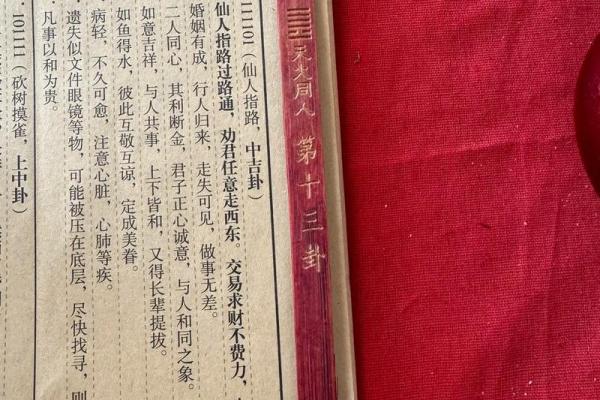 天火同人 第十三卦
11101（仙人指路，中吉卦）
仙人指路过路通，劝君任意走西东。交易求财不费力，
婚姻有成，行人归来，走失可见，做事无差。
二人同心，其利断金，君子正心诚意，与人和同之象。
如意吉祥，与人共事，上下皆和，又得长辈提拔。
如鱼得水，彼此互敬互谅，定成美眷。
病轻，不久可愈，注意心脏，心肺等疾。
遗失似文件眼镜等物，可能被压在底层，尽快找寻，则
凡事以和为贵。
10111（砍树摸雀，上中卦）